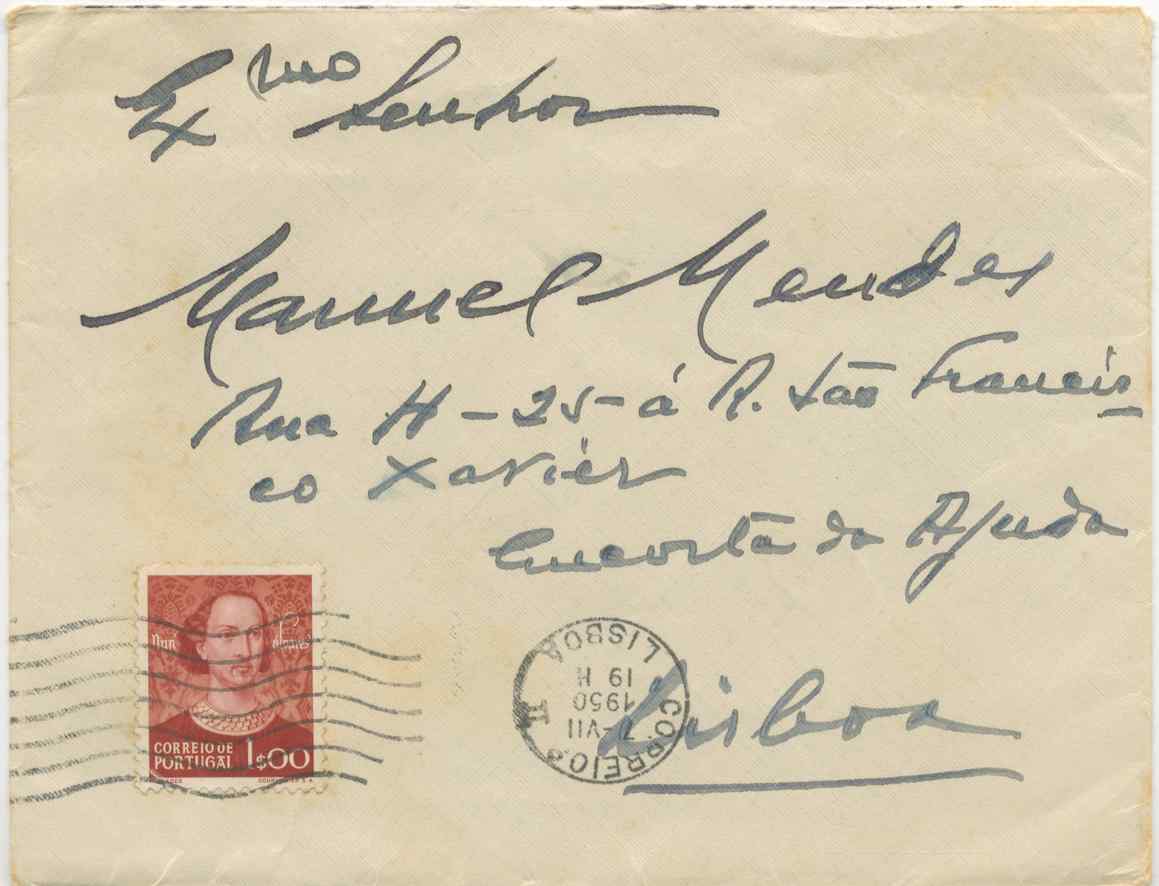 Exmo Senhor
Manuel Mendes
Rua H - 25 - à R. São Francis-
co Xavier
Encosta da Ajuda
Lisboa
Nun Alvares
CORREIO DE
PORTUGAL 1$00
CORREIOS
LISBOA
19 H
1950
7-VII
II